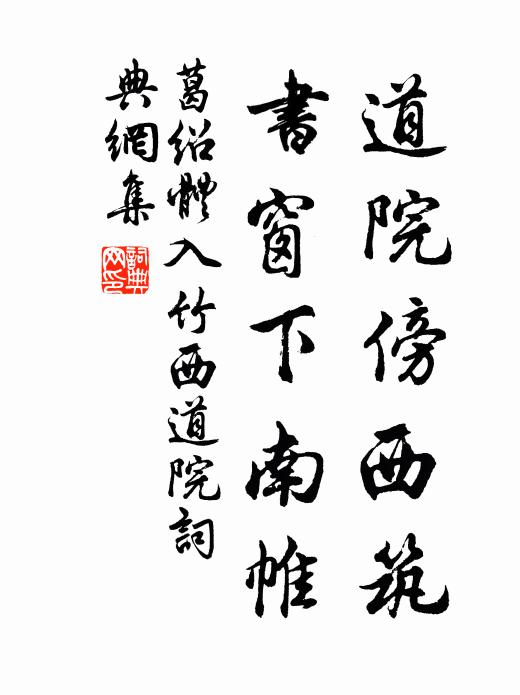 道院傍西筑
書窗下南帷
葛紹體入竹西道院詞
典網集
詞典网印